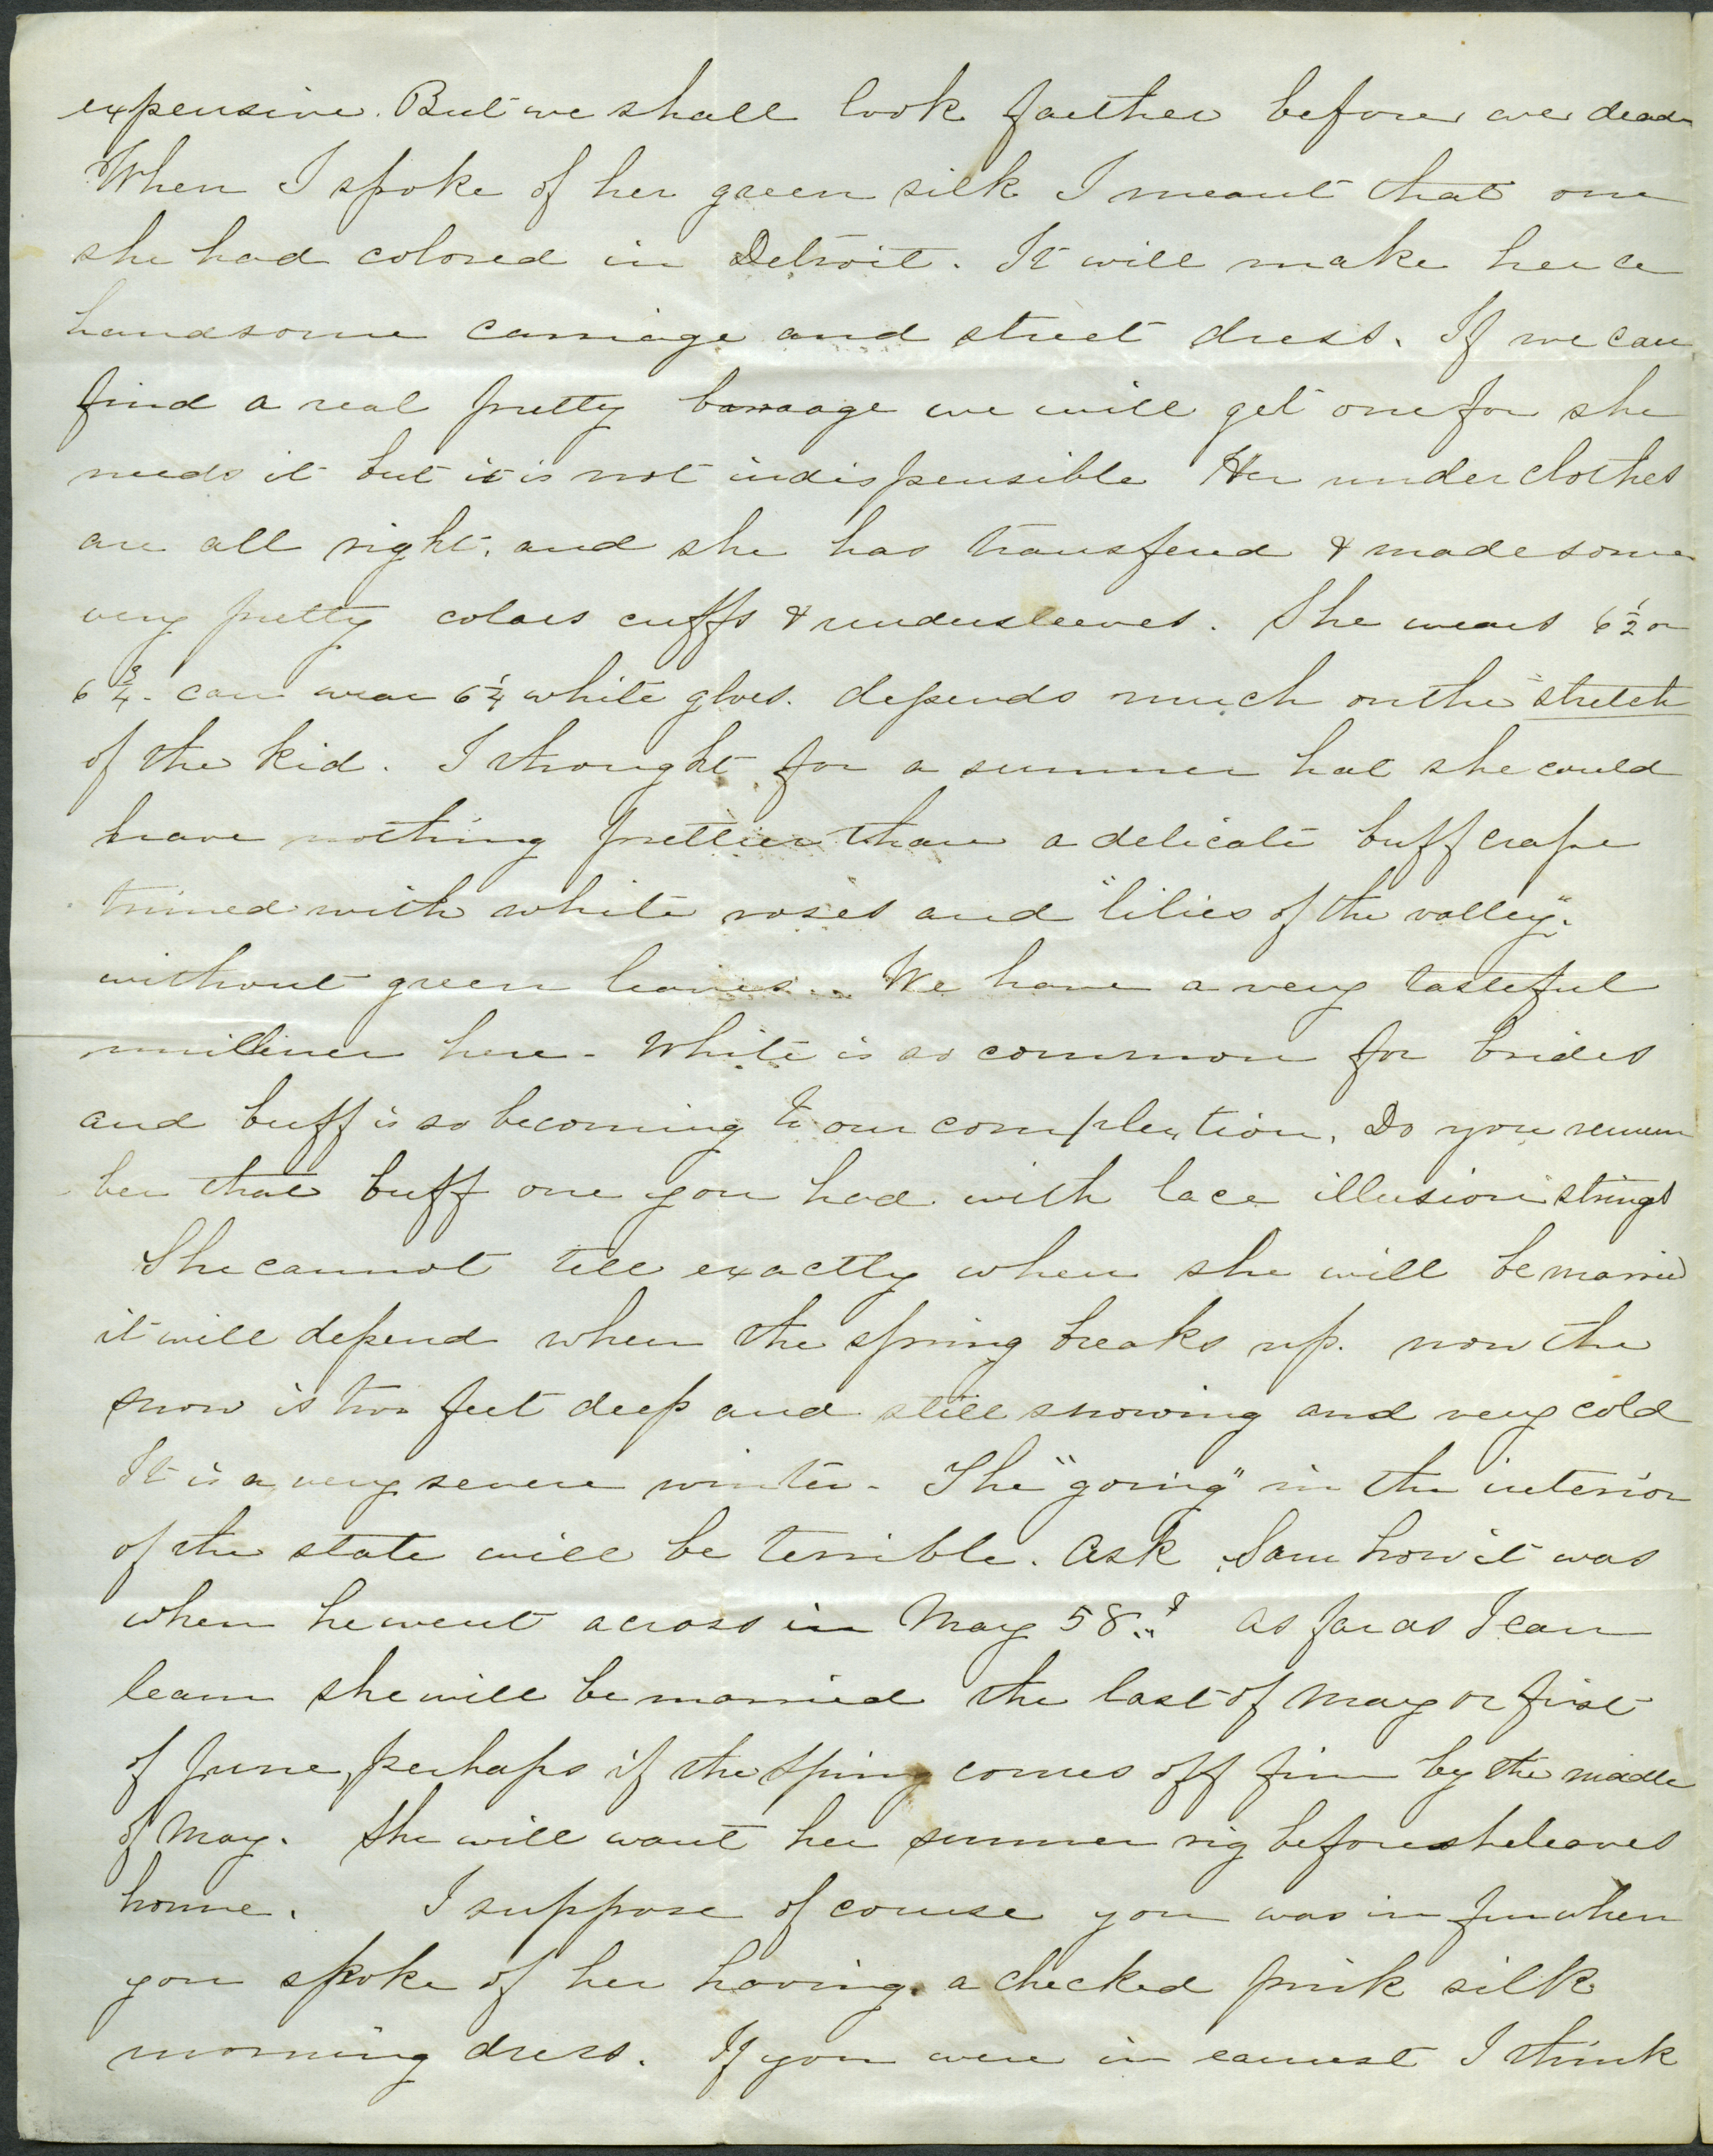 expensive. But we shall look farther before we
When I spoke of her green silk I meant that one
she had colored in Detroit. It will make her a
handsome carriage and street dress. If we can
find a real pretty barage we will get one for she
needs it but it is not indispensible Her under clothes
are all right, and she has transfered & made some
very pretty colars cuffs & undersleeves. She wears 6½ or
6¾. can wear 6¼ white gloves. depends much on the "stretch
of the kid. I thought for a summer hat she could
have nothing prettier than a delicate buff crape
trimed with white roses and "lilies of the valley".
without green leaves. We have a very tasteful
milliner here - White is so common for brides
and buff is so becoming to our complextion. Do you remem
ber that buff one you had with lace illusion strings
She cannot tell exactly when she will be married
it will depend when the spring breaks up. now the
snow is two feet deep and still snowing and very cold
It is a very severe winter. The "going" in the interior
of the state will be terrible. Ask Sam how it was
when he went across in May 58.? As far as I can
learn she will be married the last of May or first
of June, perhaps if the spring comes off fine by the middle
of May. She will want her summer rig before she leaves
home. I suppose of course you was in fun when
you spoke of her having a checked pink silk
morning dress. If you were in earnest I think